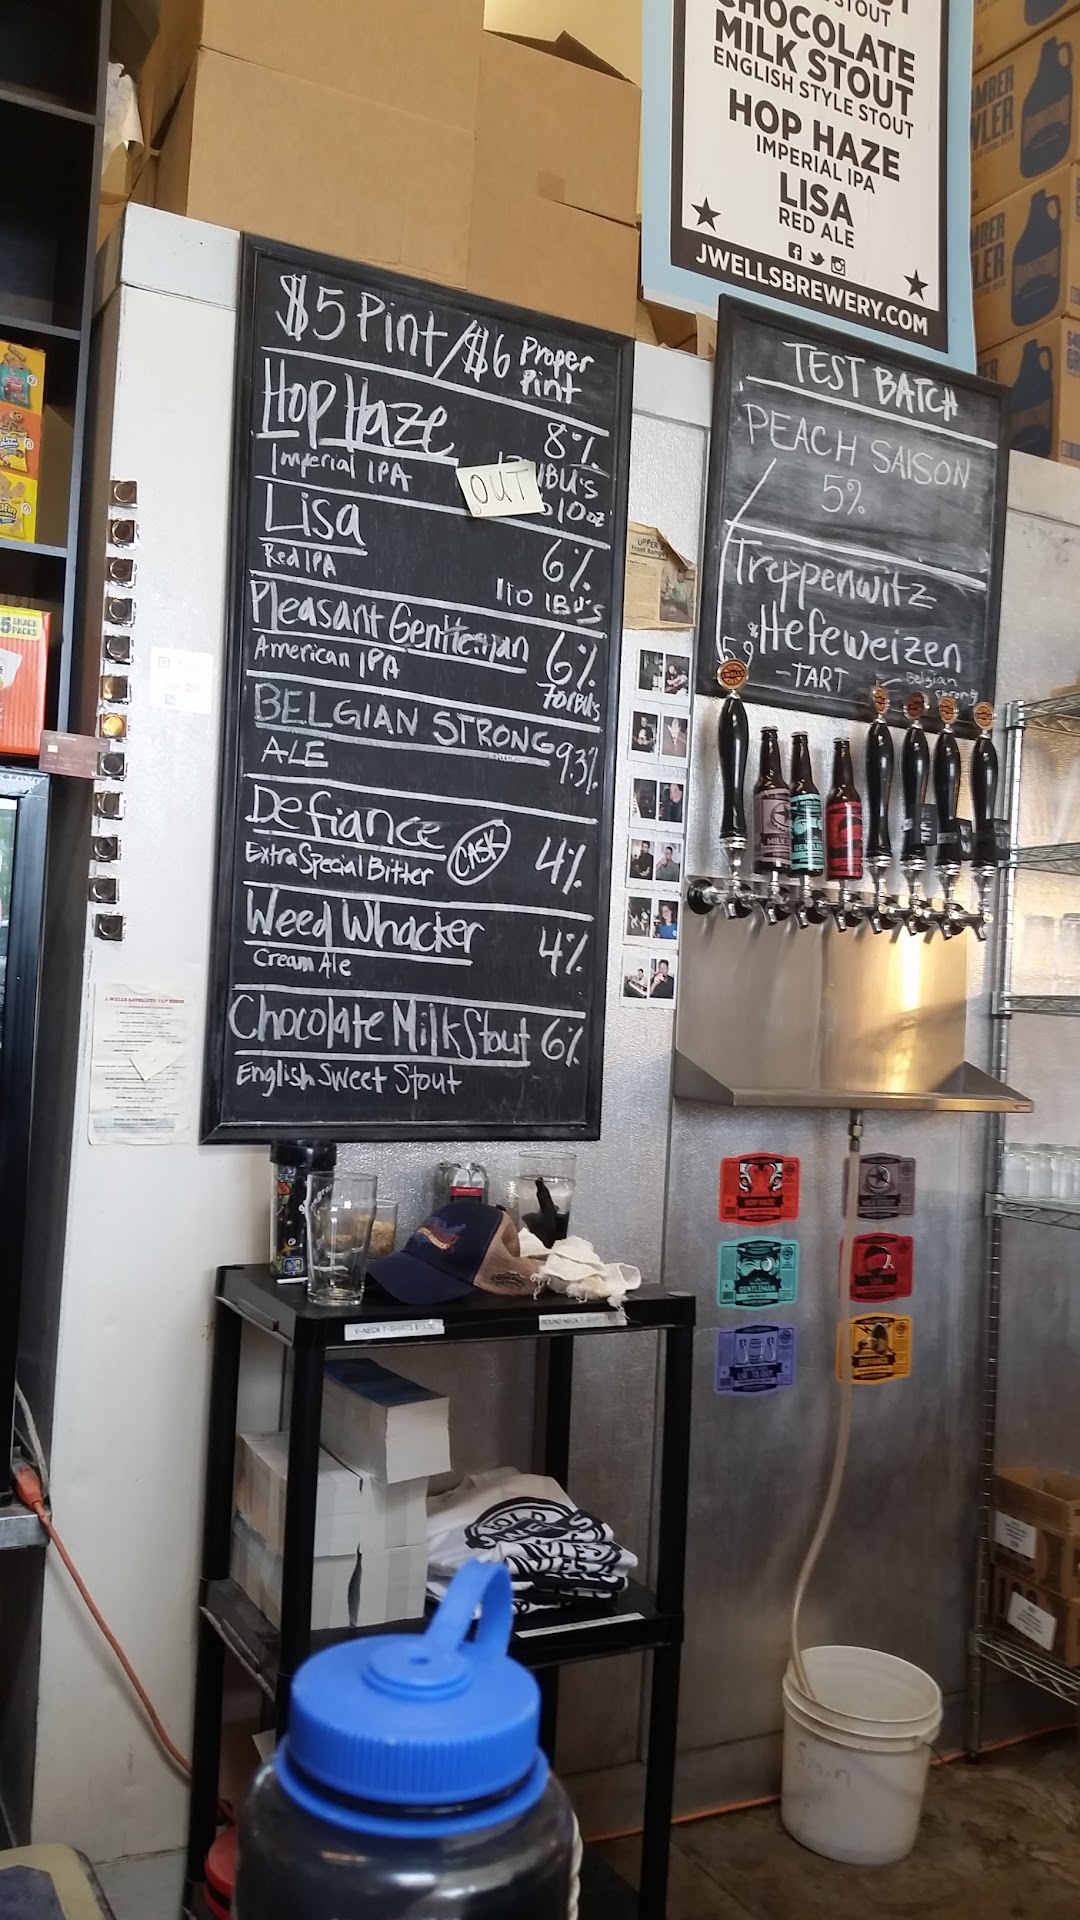 CHOCOLATE
MILK STOUT
ENGLISH STYLE STOUT
HOP HAZE
IMPERIAL IPA
LISA
RED ALE
JWELLSBREWERY.COM
$5 Pint/$6 Proper Pint
Hop Haze 8%
Imperial IPA IBU's
OUT 10oz
Lisa 6%
Red IPA 110 IBU's
Pleasant Gentleman 6%
American IPA 70 IBU's
BELGIAN STRONG 9.3%
ALE
Defiance
Extra Special Bitter CASK 4%
Weed Whacker 4%
Cream Ale
Chocolate Milk Stout 6%
English Sweet Stout
TEST BATCH
PEACH SAISON
5%
Treppenwitz
Hefeweizen
-TART Belgian
Strong
UPPER
Front Range
5 SNACK
PACKS
J WELLS SATELLITE TAP ROOM
MILK
GENTLE
HOP HAZE
MILK STOUT
GENTLEMAN
DEFIANCE
V-NECK T-SHIRTS $13.00
ROUND NECK T-SHIRTS